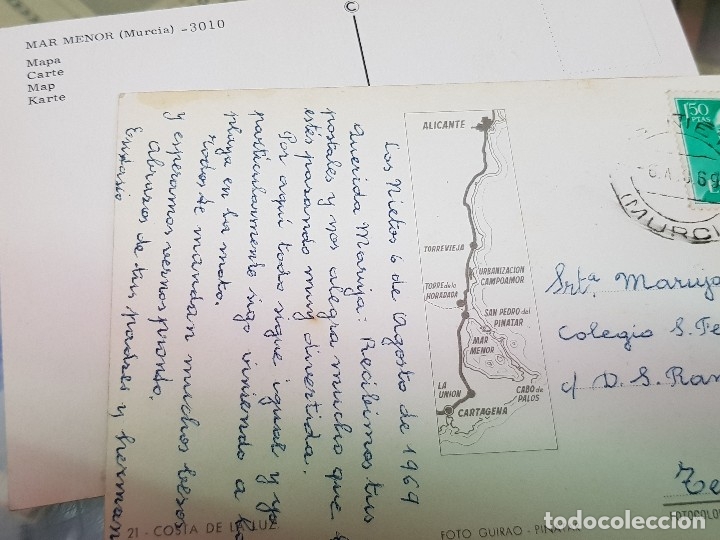 MAR MENOR (Murcia) -3010
Mapa
Carte
Map
Karte
Los Nietos 6 de Agosto de 1969
Querida Maruja: Recibimos tus
postales y nos alegra mucho que
estes pasando muy divertida.
Por aqui todo sigue igual y yo
particularmente sigo iniendo a la
playa en la moto.
Todos te mandan muchos besos
y esperamos vernos pronto.
Abrazos de tus padres y herman
Eustasio
ALICANTE
TORREVIEJA
URBANIZACION
CAMPOAMOR
TORRE de la
HORADADA
SAN PEDRO del
PINATAR
MAR
MENOR
LA
UNION
CABO de
PALOS
CARTAGENA
1'50
PTAS
MURCI
Srta. Maruja
Colegio S. Fe
c/ D. S. Ram
21 - COSTA DE LA LUZ
FOTO GUIRAO - PINATAR
FOTOCOLOR
todocoleccion